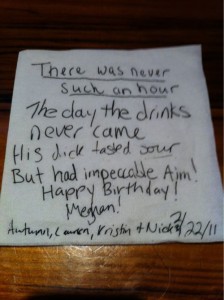 There was never
such an hour
The day the drinks
never came
His dick tasted sour
But had impeccable Aim!
Happy Birthday!
Megan!
Autumn, Lauren, Kristin + Nick 2/22/11